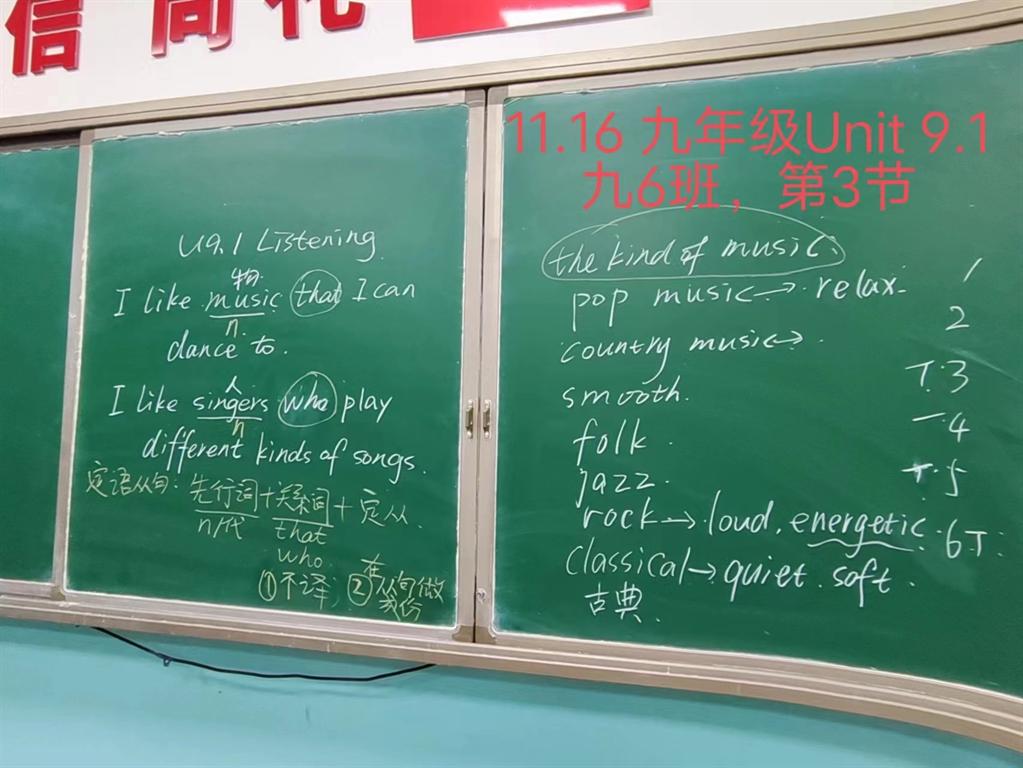 信
11.16 九年级Unit 9.1
九6班，第3节
U9.1 Listening
物
I like music that I can
n.
dance to.
人
I like singers who play
n
different kinds of songs.
定语从句：先行词+关系词+定从.
n/代 that
who
①不译, ②在从句做
成份
the kind of music:
pop music→ relax.
country music→.
smooth.
folk.
jazz.
rock→loud, energetic.
classical→quiet. soft.
古典.
1
2
T.3
4
5
6T.